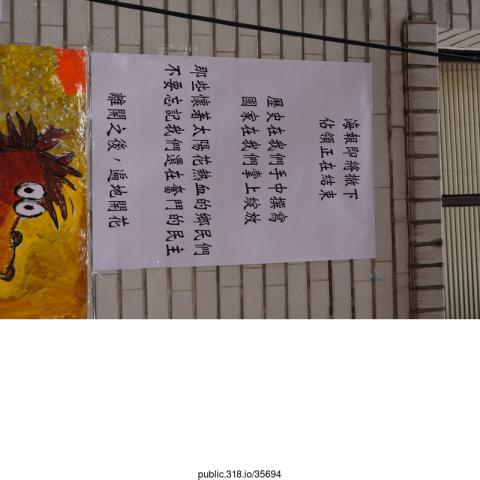 海報即將撤下
佔領正在結束
歷史在我們手中撰寫
國家在我們掌上綻放
那些懷著太陽花熱血的鄉民們
不要忘記我們還在奮鬥的民主
離開之後，遍地開花
public.318.io/35694